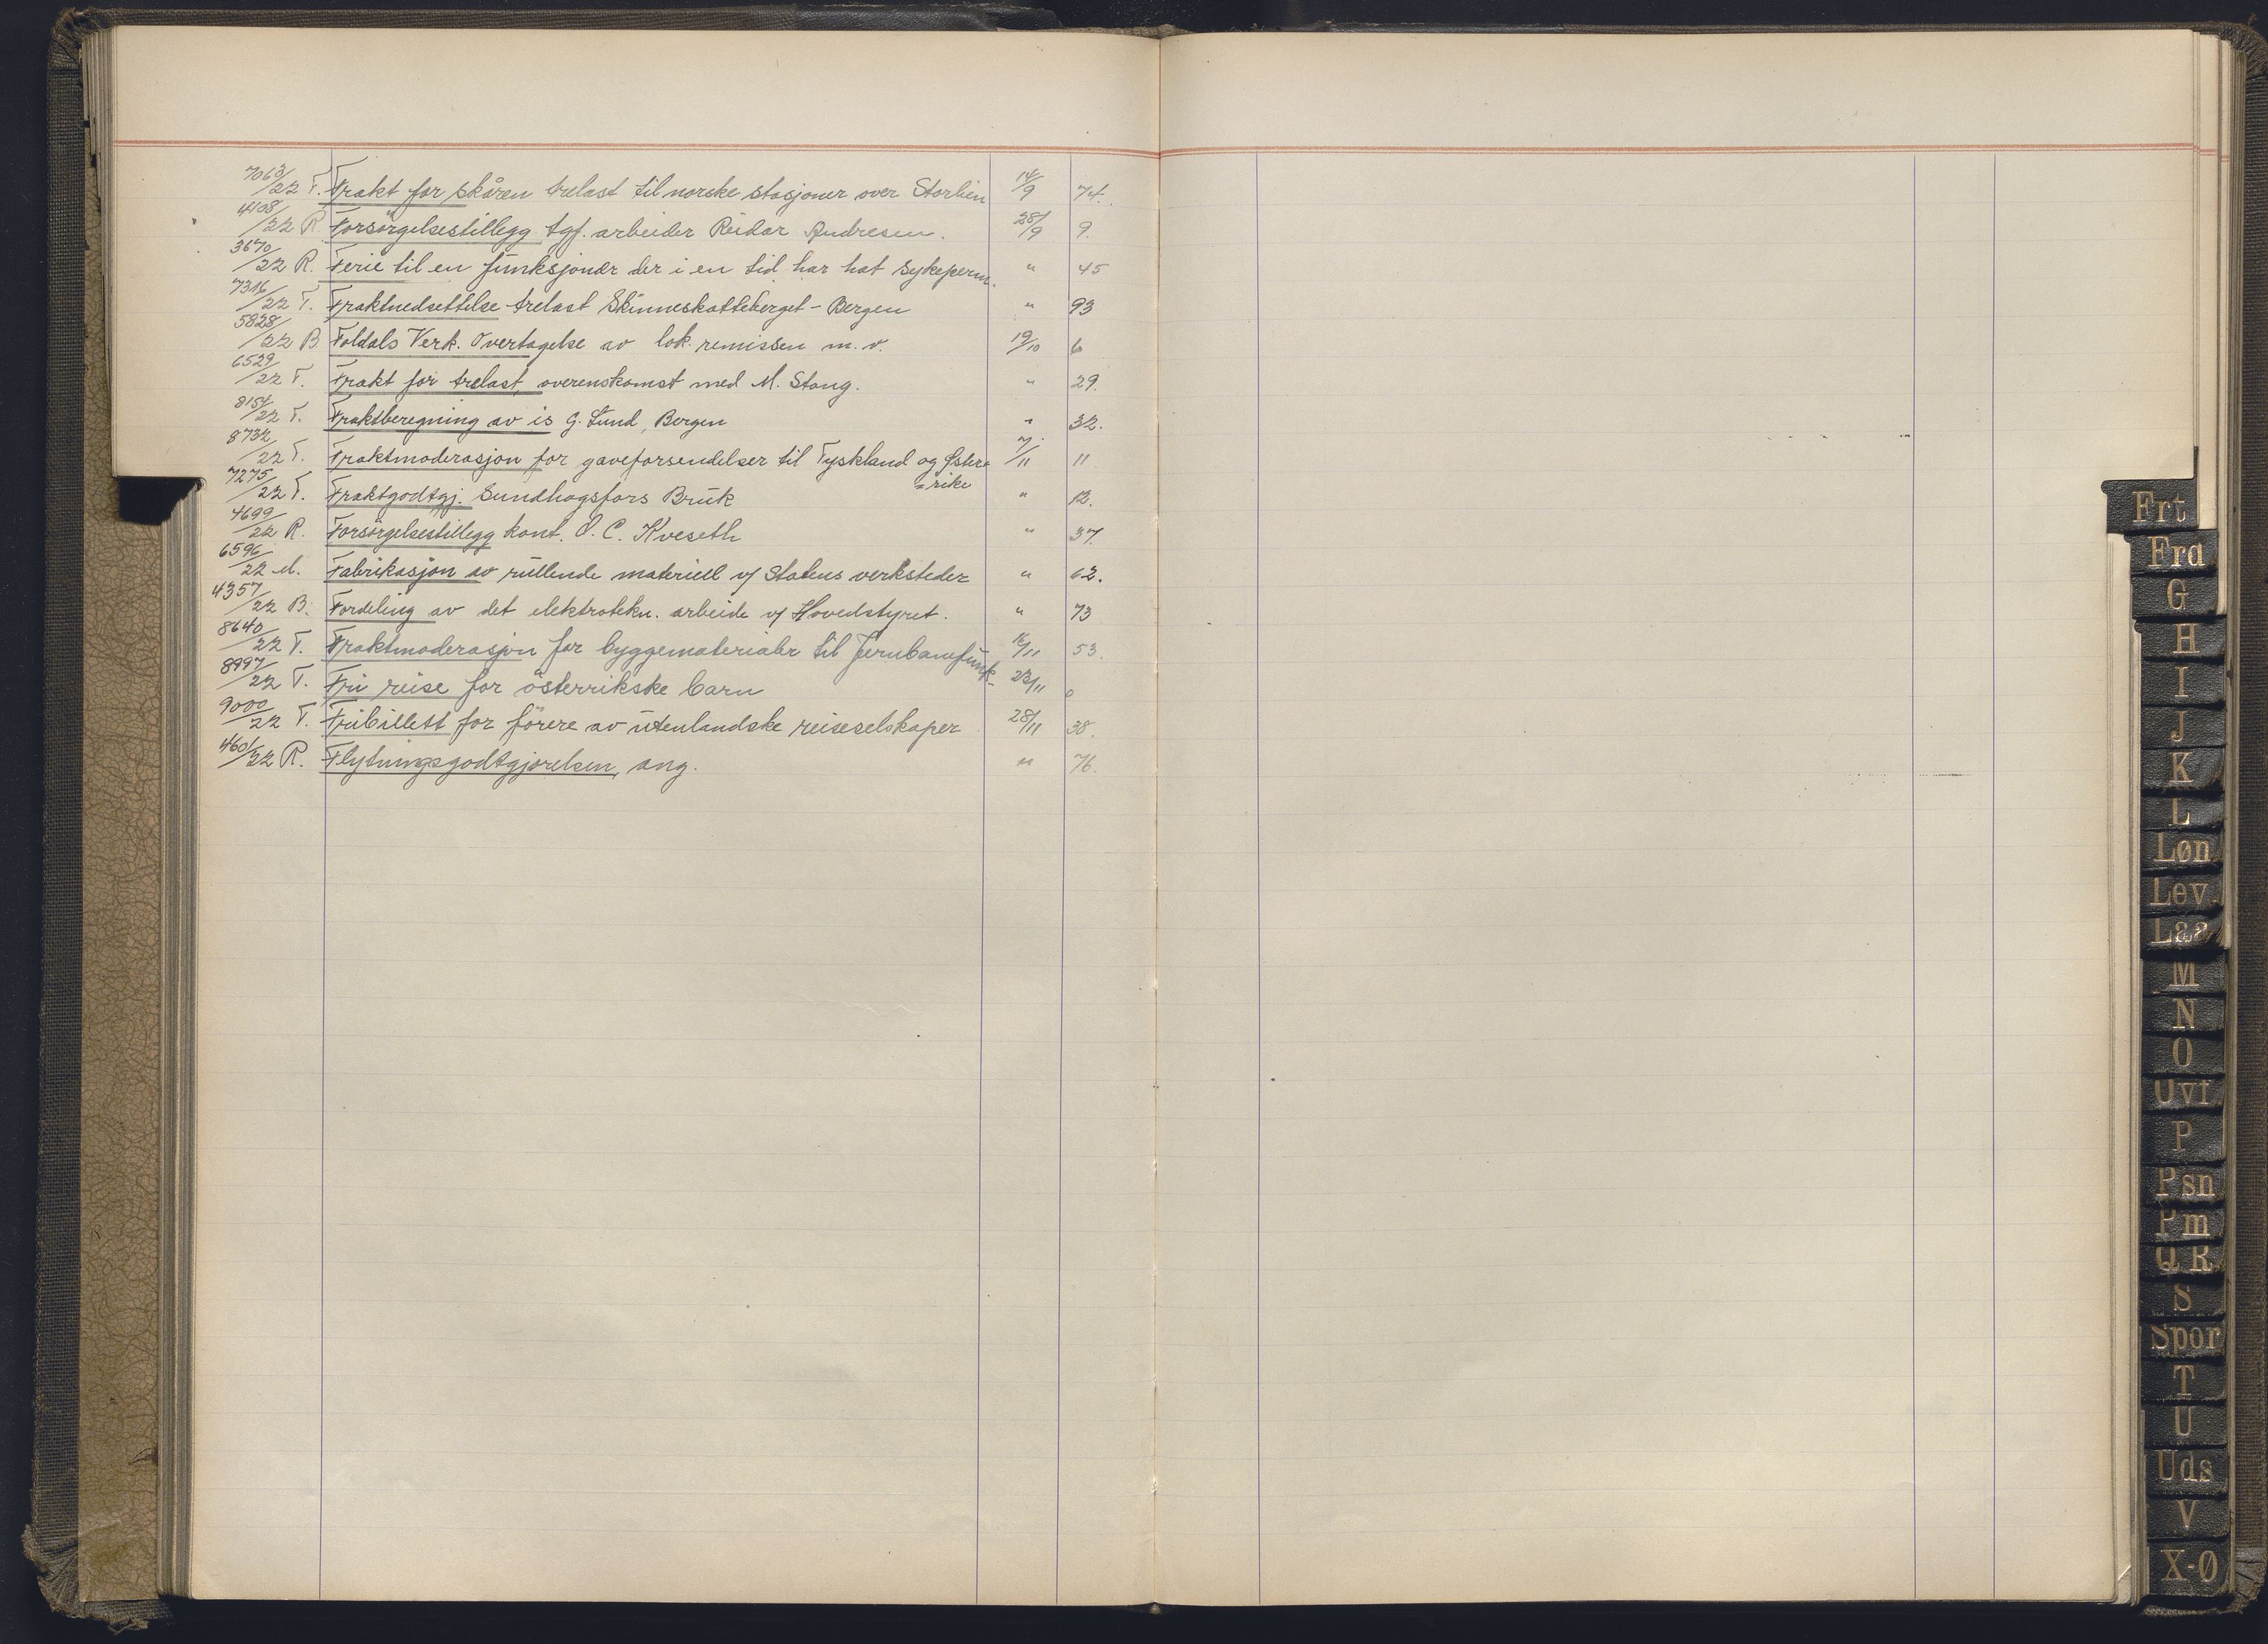 7063/22 T. Frakt for skåren trelast til norske stasjoner over Storlien 14/9 74.
4108/22 R. Forsörgelsestillegg tgf. arbeider Reidar Andresen. 28/9 9.
3670/22 R. Ferie til en funksjonær der i en tid har hat sykeperm. " 45
7316/22 T. Fraktnedsettelse trelast Skinneskatteberget - Bergen " 93
5828/22 B. Foldals Verk. Overtagelse av lok. remissen m. v. 19/10 6
6529/22 T. Frakt for trelast, overenskomst med M. Stang. " 29.
8154/22 T. Fraktberegning av is G. Lund, Bergen " 32.
8732/22 T. Fraktmoderasjon for gaveforsendelser til Tyskland og Øster= 7/11 11
=rike
7275/22 T. Fraktgodtgj. Sundhagsfors Bruk " 12.
4699/22 R. Forsörgelsestillegg kont. O. C. Kveseth " 37.
6596/22 M. Fabrikasjon av rullende materiell v/ Statens verksteder " 62.
4357/22 B. Fordeling av det elektrotekn. arbeide v/ Hovedstyret. " 73
8640/22 T. Fraktmoderasjon for byggematerialer til Jernbanefunk- 16/11 53.
8997/22 T. Fri reise for österrikske barn 23/11
9000/22 T. Fribillett for förere av utenlandske reiseselskaper 28/11 38.
4601/22 R. Flytningsgodtgjörelsen, ang. " 76.
Frt
Fra
G
H
I
J
K
L
Løn
Lev.
Laa
M
N
O
Ovf
P
Psn
Pm
Q R
S
Spor
T
U
Uds
V
X-Ø